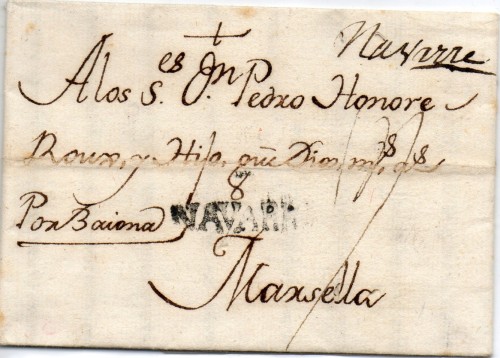 Navarre
A los S.es Jn Pedro Honore
Roux, y Hijo, que Dios ms. as
8
Por Baiona
NAVARR
Marsella